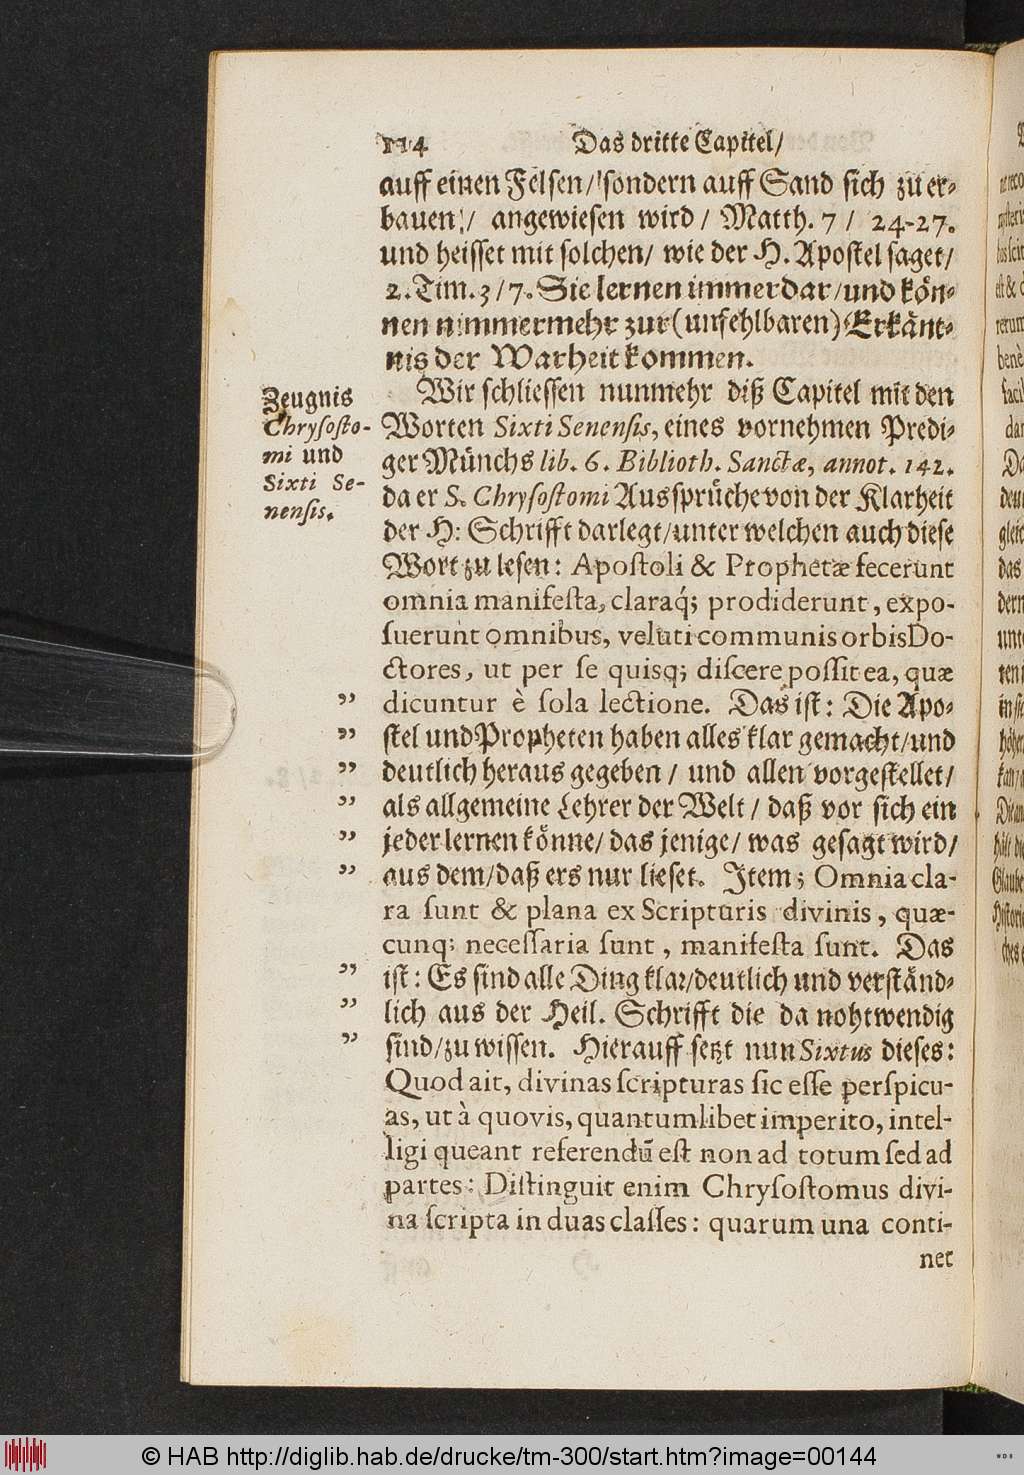 114 Das dritte Capitel/
auff einen Felsen/ sondern auff Sand sich zu er-
bauen/ angewiesen wird / Matth. 7 / 24-27.
und heisset mit solchen/ wie der H. Apostel saget/
2. Tim. 3/7. Sie lernen immerdar/und kön-
nen nimmermehr zur (unfehlbaren) Erkänt-
nis der Warheit kommen.
Wir schliessen nunmehr diß Capitel mit den
Zeugnis
Chryſoſto-
mi und
Sixti Se-
nenſis.
Worten Sixti Senenſis, eines vornehmen Predi-
ger Münchs lib. 6. Biblioth. Sanctæ, annot. 142.
da er S. Chryſoſtomi Aussprüche von der Klarheit
der H: Schrifft darlegt/unter welchen auch diese
Wort zu lesen: Apoſtoli & Prophetæ fecerunt
omnia manifeſta, claraq́; prodiderunt, expo-
ſuerunt omnibus, veluti communis orbis Do-
ctores, ut per ſe quisq; diſcere poſſit ea, quæ
” dicuntur è ſola lectione. Das ist: Die Apo-
” stel und Propheten haben alles klar gemacht/und
” deutlich heraus gegeben / und allen vorgestellet/
” als allgemeine Lehrer der Welt / daß vor sich ein
” jeder lernen könne/ das jenige/ was gesagt wird/
” aus dem/daß ers nur lieset. Item; Omnia cla-
ra ſunt & plana ex Scripturis divinis, quæ-
cunq; neceſſaria ſunt, manifeſta ſunt. Das
” ist: Es sind alle Ding klar/deutlich und verständ-
” lich aus der Heil. Schrifft die da nohtwendig
” sind/zu wissen. Hierauff setzt nun Sixtus dieses:
Quod ait, divinas ſcripturas ſic eſſe perſpicu-
as, ut à quovis, quantumlibet imperito, intel-
ligi queant referendū eſt non ad totum ſed ad
partes: Diſtinguit enim Chryſoſtomus divi-
na ſcripta in duas claſſes: quarum una conti-
net
© HAB http://diglib.hab.de/drucke/tm-300/start.htm?image=00144